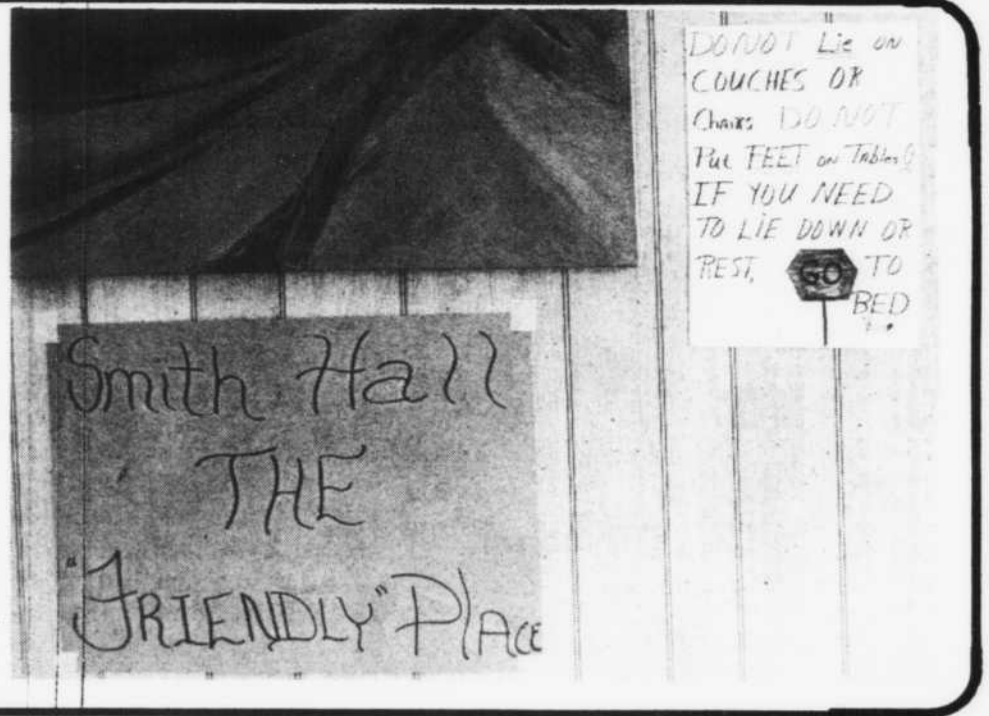 DO NOT Lie on
COUCHES OR
Chairs DO NOT
Put FEET on Tables
IF YOU NEED
TO LIE DOWN OR
REST, GO TO
BED
Smith Hall
THE
"FRIENDLY" PlAce